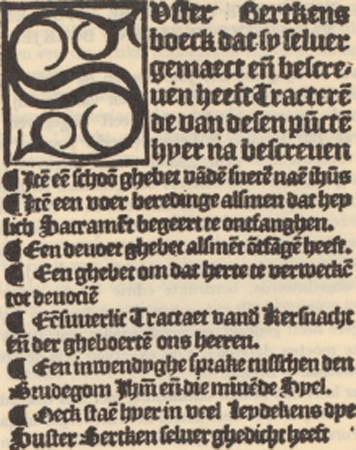 SUster Bertkens
boeck dat sy seluer
gemaect eñ bescre-
uen heeft Tracterē
de van desen pūctē
hyer na bescreuen
¶ Itē eē schoō ghebet vādē suetē naē ihūs
¶ Itē een voer beredinge alsmen dat hey
lich Sacramēt begeert te ontfanghen.
¶ Een deuoet ghebet alsmēt ōtfāgē heeft.
¶ Een ghebet om dat herte te verweckē
tot deuociē
¶ Eē suuerlic Tractaet vand Kersnacht
eñ der gheboertē ons heeren.
¶ Een inwendyghe sprake tusschen den
Brudegom Ihm̄ eñ die mīnēde Syel.
¶ Oeck staē hyer in veel leydekens dye
Suster Bertken seluer ghedicht heeft